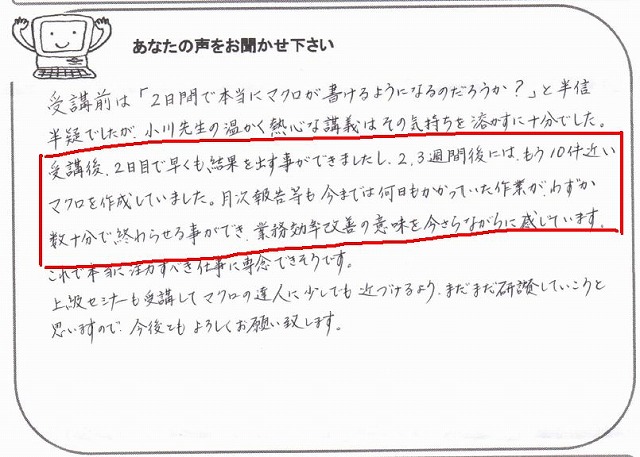 あなたの声をお聞かせ下さい
受講前は「2日間で本当にマクロが書けるようになるのだろうか?」と半信
半疑でしたが、小川先生の温かく熱心な講義はその気持ちを溶かすに十分でした。
受講後、2日目で早くも結果を出す事ができましたし、2,3週間後には、もう10件近い
マクロを作成していました。月次報告等も今までは何日もかかっていた作業が、わずか
数十分で終わらせる事ができ、業務効率改善の意味を今さらながらに感じています。
これで本当に注力すべき仕事に専念できそうです。
上級セミナーも受講してマクロの達人に少しでも近づけるよう、まだまだ研讃していこうと
思いますので、今後ともよろしくお願い致します。